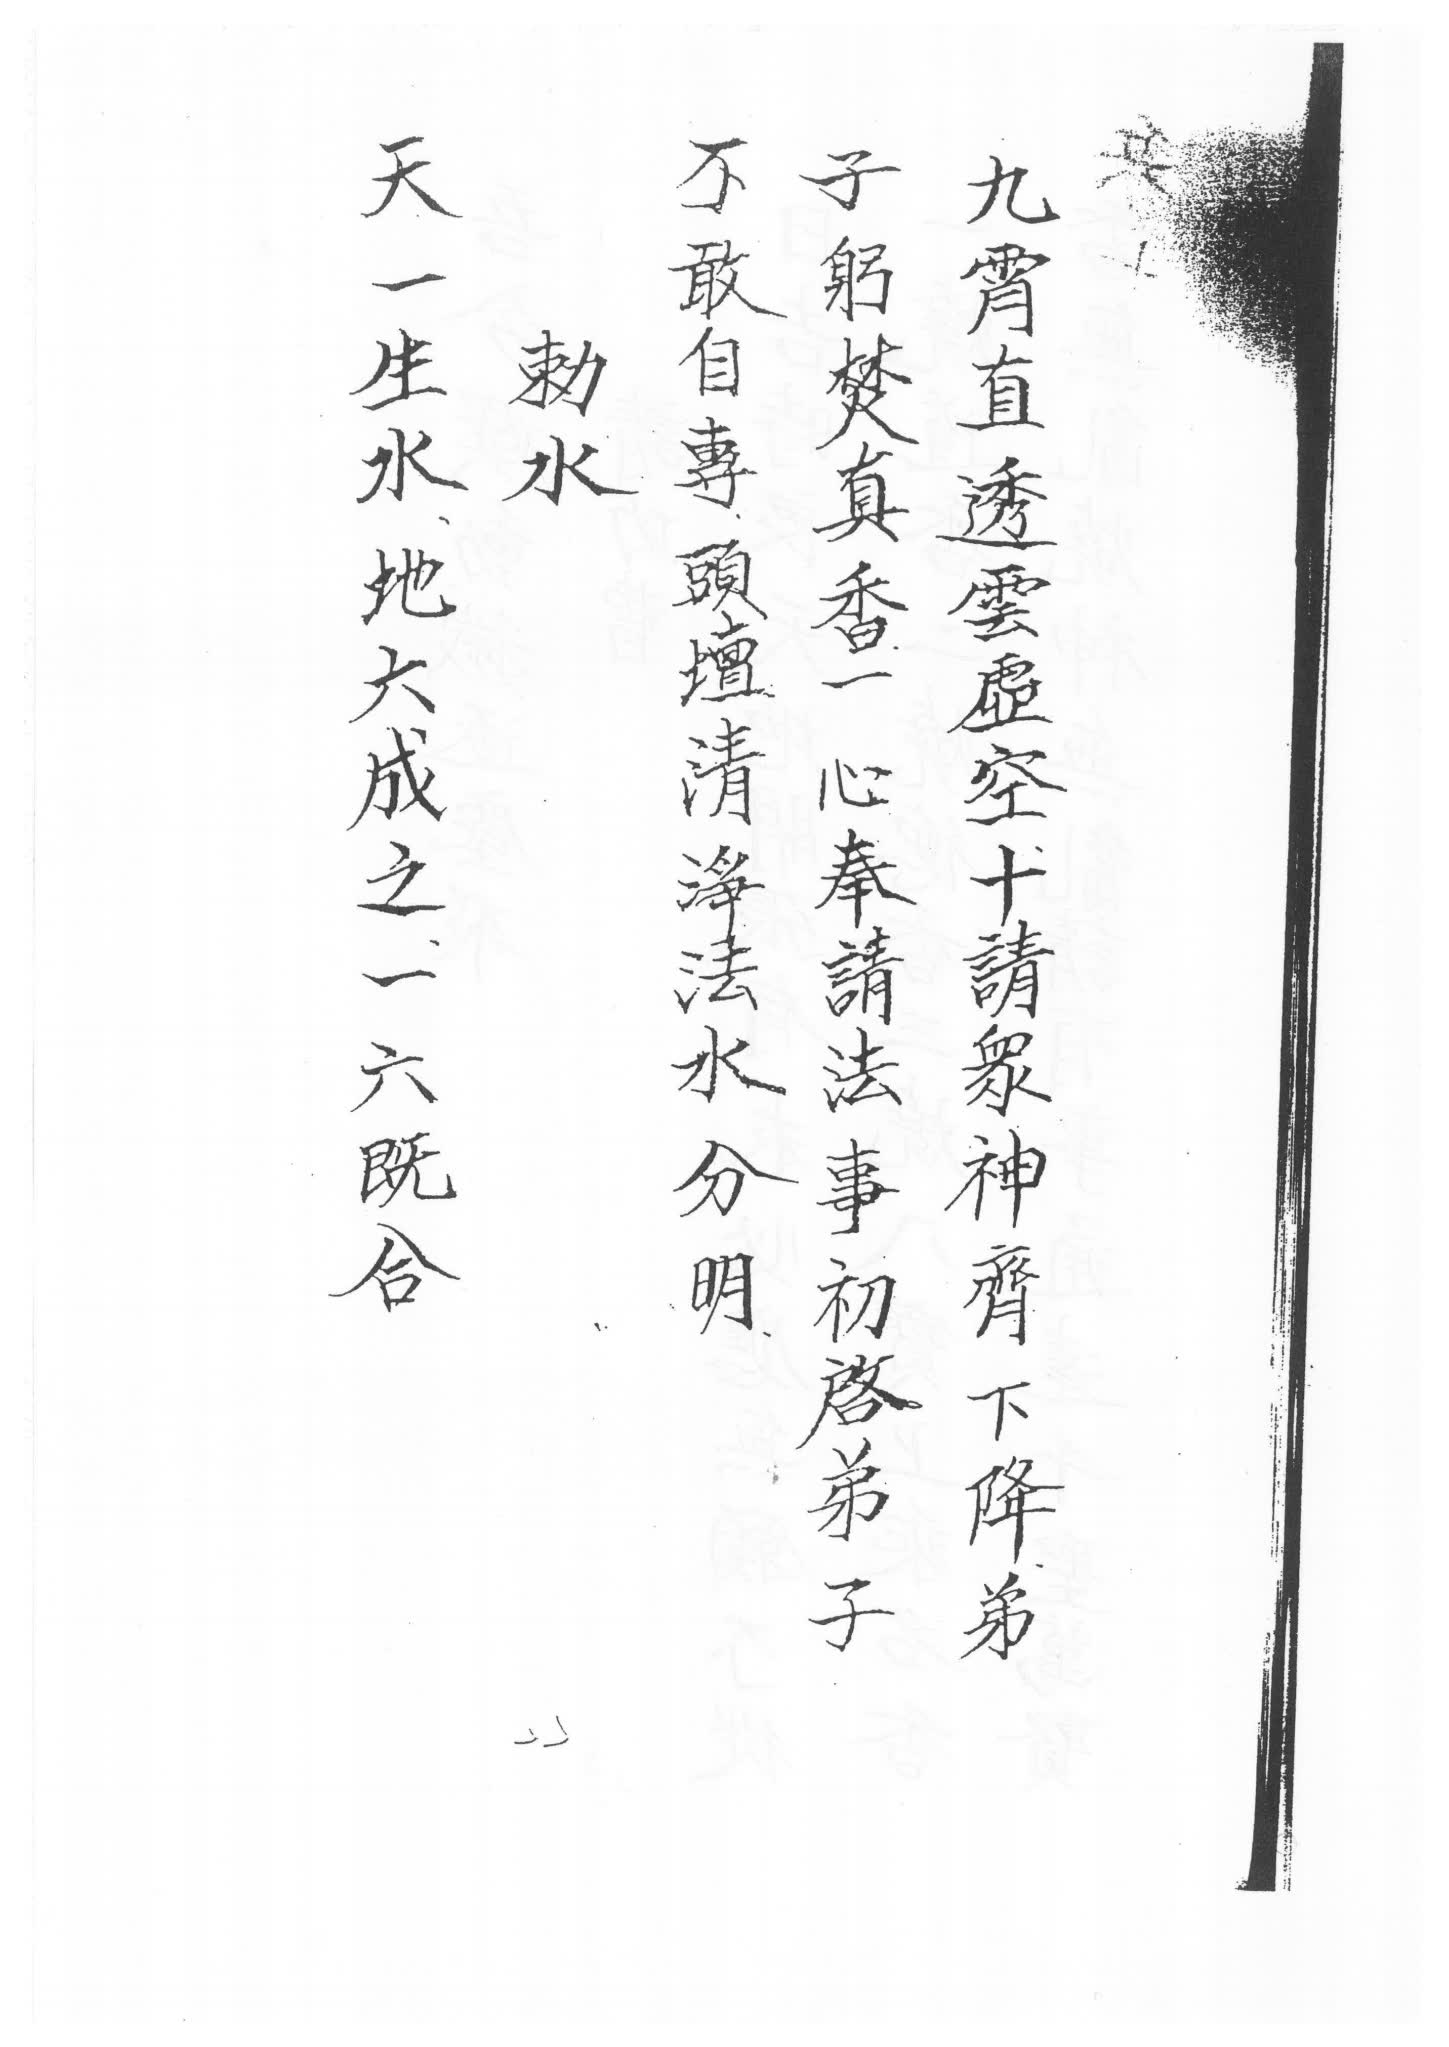 九霄直透雲虛空、十請眾神齊下降、弟
子躬焚真香一心奉請法事初啓弟子
不敢自專、頭壇清淨法水分明、
勅水
天一生水、地六成之、一六既合